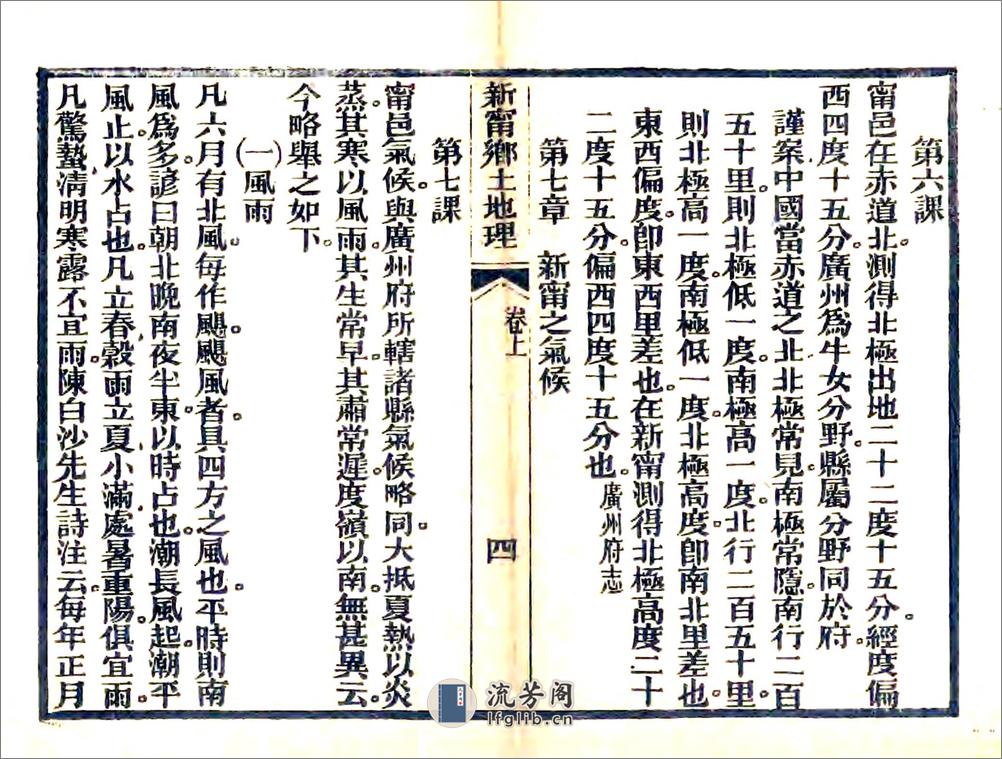 第六課
甯邑在赤道北測得北極出地二十二度十五分。經度偏
西四度十五分。廣州爲牛女分野。縣屬分野同於府。
謹案中國當赤道之北北極常見。南極常隱。南行二百
五十里則北極低一度。南極高一度。北行二百五十里。
則北極高一度。南極低一度。北極高度。卽南北里差也。
東西偏度。卽東西里差也。在新甯測得北極高度二十
二度十五分。偏西四度十五分也。廣州府志
第七章 新甯之氣候
新甯鄉土地理 卷上 四
第七課
甯邑氣候。與廣州府所轄諸縣氣候略同。大抵夏熱以炎
蒸。其寒以風雨。其生常早。其肅常遲。度嶺以南。無甚異云。
今略舉之如下。
(一)風雨
凡六月有北風。每作颶。颶風者。具四方之風也。平時則南
風爲多。諺曰。朝北晚南夜半東。以時占也。潮長風起。潮平
風止。以水占也。凡立春穀雨立夏小滿處暑重陽。俱宜雨。
凡驚蟄清明寒露不宜雨。陳白沙先生詩注云。每年正月
流芳阁
lfglib.cn